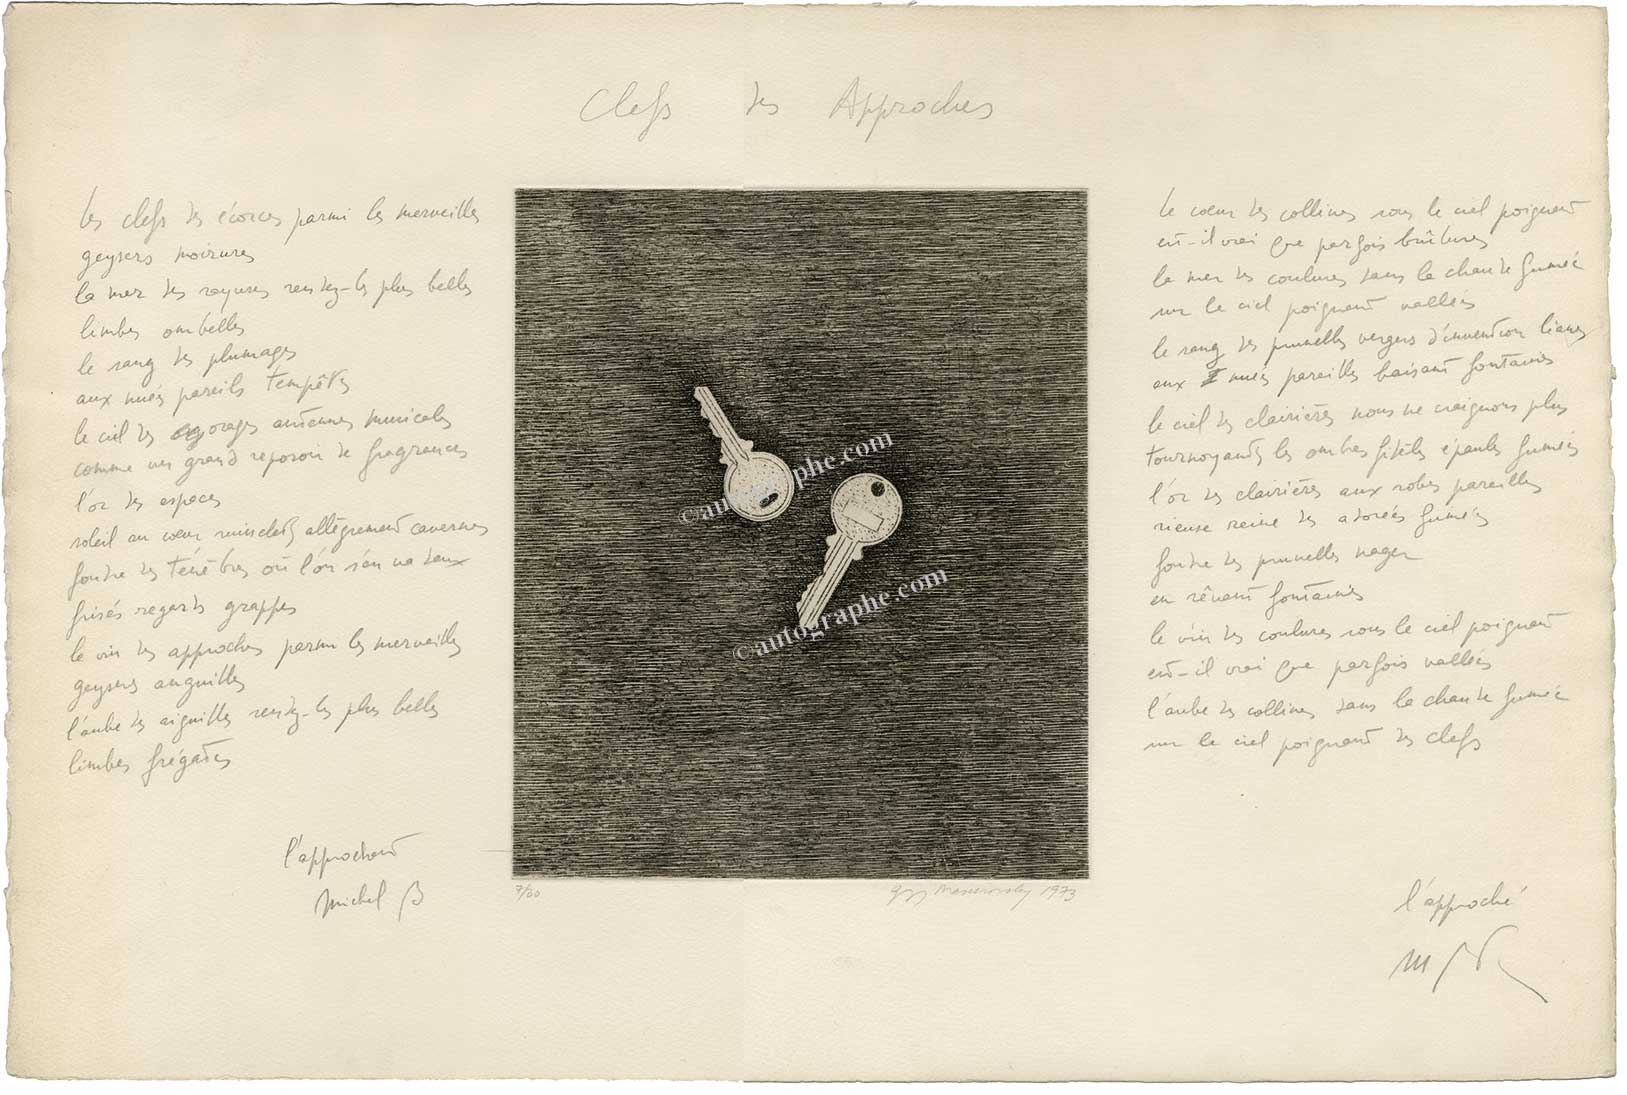 Clefs des Approches
les clefs des écorces parmi les merveilles
geysers moirures
la mer des rayures rendez-les plus belles
limbes ombelles
le sang des plumages
aux nués pareils tempêtes
le ciel des orages antennes musicales
comme un grand reposoir de fragrances
l'or des espaces
soleil au cœur allègrement cavernes
foudre des ténèbres où l'on s'en va deux
frisés regards grappes
le vin des approches parmi les merveilles
geysers anguilles
l'aube des aiguilles rendez-les plus belles
limbes frégates
l'approchant
Michel B
©autographe.com
©autographe.com
7/30
1973
le cœur des collines sous le ciel poignant
est-il vrai que parfois brûlures
la mer des coulures dans la chaude fumée
sur le ciel poignant vallées
le sang des prunelles vergers d'invention lianes
aux nués pareilles baisant fontaines
le ciel des clairières nous ne craignons plus
tournoyants les ombres épaules fumées
l'or des clairières aux robes pareilles
rieuse reine des adorées fumées
foudre des prunelles nager
en rêvant fontaines
le vin des coulures sous le ciel poignant
est-il vrai que parfois vallées
l'aube des collines dans la chaude fumée
sur le ciel poignant des clefs
l'approché